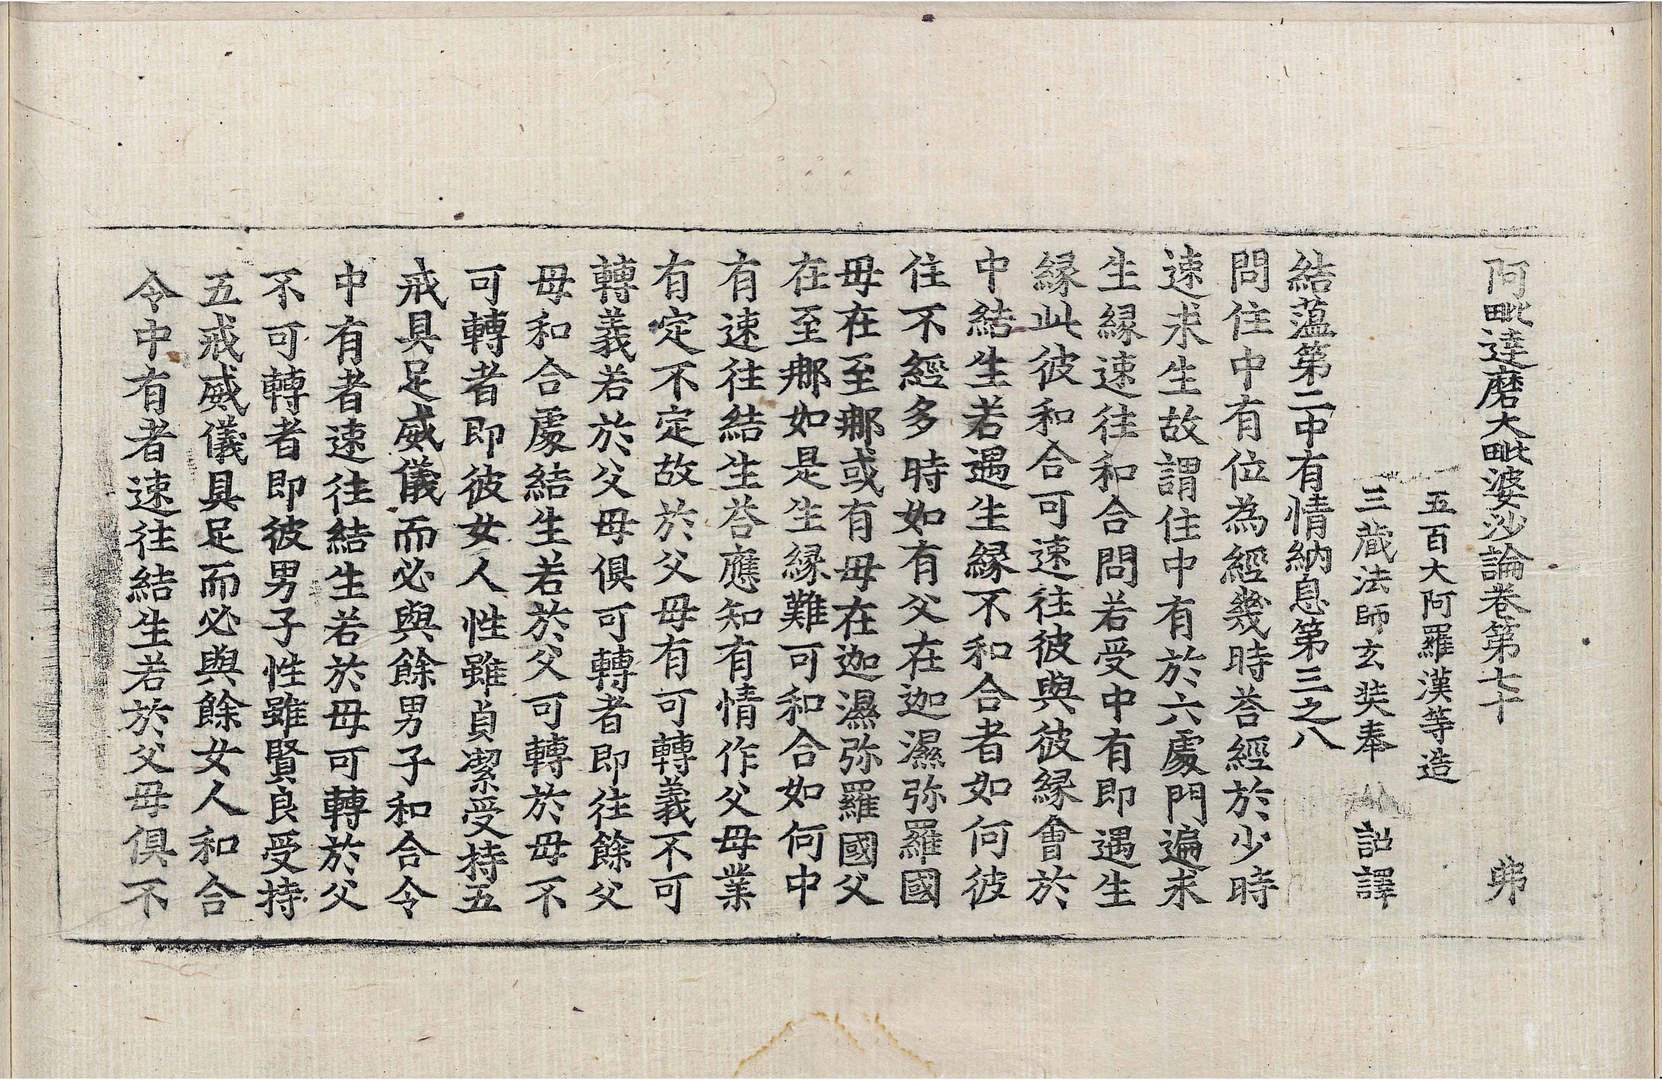 阿毗達磨大毗婆沙論卷第七十 弗
五百大阿羅漢等造
三藏法師玄奘奉 詔譯
結蘊第二中有情納息第三之八
問住中有位為經幾時荅經於少時
速求生故謂住中有於六處門遍求
生緣速往和合問若受中有即遇生
緣此彼和合可速往彼與彼緣會於
中結生若遇生緣不和合者如何彼
住不經多時如有父在迦濕弥羅國
母在至郍或有母在迦濕弥羅國父
在至郍如是生緣難可和合如何中
有速往結生荅應知有情作父母業
有定不定故於父母有可轉義不可
轉義若於父母俱可轉者即往餘父
母和合處結生若於父可轉於母不
可轉者即彼女人性雖貞潔受持五
戒具足威儀而必與餘男子和合令
中有者速往結生若於母可轉於父
不可轉者即彼男子性雖賢良受持
五戒威儀具足而必與餘女人和合
令中有者速往結生若於父母俱不